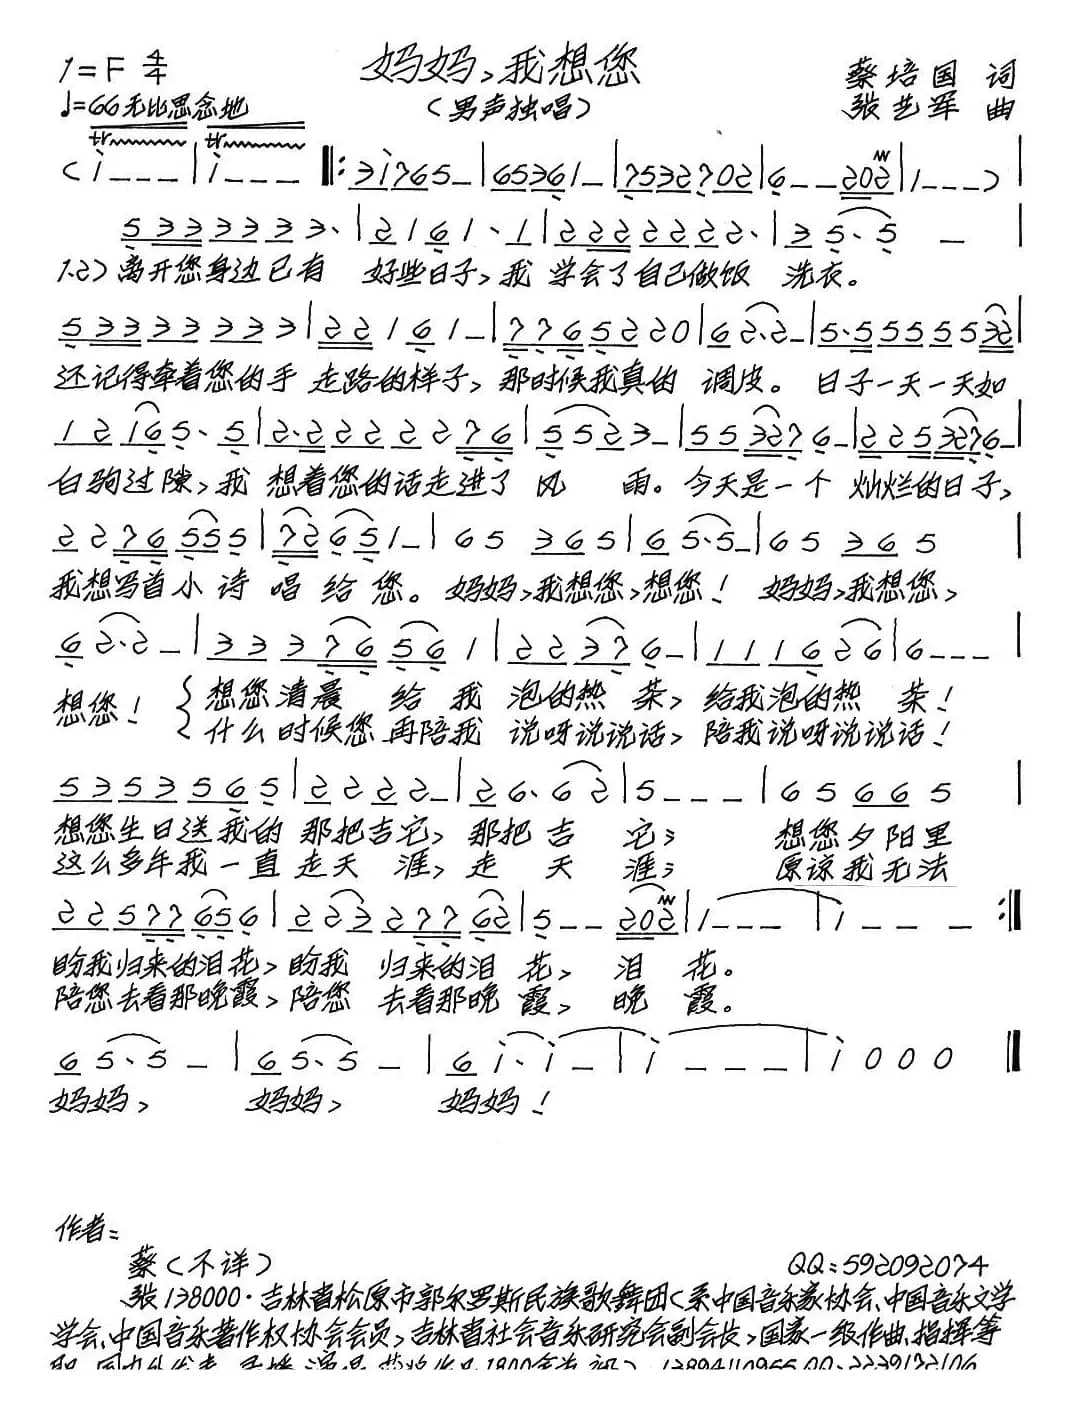 1=F 4/4 妈妈，我想您 蔡培国 词
♩=66 无比思念地 （男声独唱） 张艺军 曲
tr tr
( i - - - | i - - - ‖: 3 i 7 6 5 - | 6 5 3 6 1 - | 7 5 3 2 7 0 2 | 6 - - 2 0 2 | 1 - - - )
5 3 3 3 3 3 3 3· | 2 1 6 1· 1 | 2 2 2 2 2 2 2· | 3 5· 5 -
1.2) 离开您身边已有 好些日子，我 学会了自己做饭 洗衣。
5 3 3 3 3 3 3 3 | 2 2 1 6 1 - | 7 7 6 5 2 2 0 | 6 2· 2 - | 5· 5 5 5 5 5 3 2 |
还记得牵着您的手 走路的样子，那时候我真的 调皮。 日子一天一天如
1 2 1 6 5· 5 | 2· 2 2 2 2 2 7 6 | 5 5 2 3 - | 5 5 3 2 7 6 - | 2 2 5 3 2 7 6 - |
白驹过隙，我 想着您的话走进了 风 雨。今天是一个 灿烂的日子，
2 2 7 6 5 5 5 | 7 2 6 5 1 - | 6 5 3 6 5 | 6 5· 5 - | 6 5 3 6 5 |
我想写首小诗 唱给您。妈妈，我想您，想您！ 妈妈，我想您，
6 2· 2 - | 3 3 3 7 6 5 6 1 | 2 2 3 7 6 - | 1 1 1 6 2 6 | 6 - - - |
想您！ 想您清晨 给我 泡的热 茶，给我泡的热 茶！
什么时候您 再陪我 说呀说说话， 陪我说呀说说话！
5 3 5 3 5 6 5 | 2 2 2 2 - | 2 6· 6 2 | 5 - - - | 6 5 6 6 5 |
想您生日送我的 那把吉它，那把吉 它； 想您夕阳里
这么多年我一直走天 涯，走 天 涯； 原谅我无法
2 2 5 7 7 6 5 6 | 2 2 3 2 7 7 6 2 | 5 - - 2 0 2 | 1 - - - | i - - - :‖
盼我归来的泪花，盼我 归来的泪 花， 泪 花。
陪您去看那晚霞，陪您 去看那晚 霞， 晚 霞。
6 5· 5 - | 6 5· 5 - | 6 i· i - | i - - - | i 0 0 0 ‖
妈妈， 妈妈， 妈妈！
作者：
蔡（不详） QQ：592092074
张 138000·吉林省松原市郭尔罗斯民族歌舞团（系中国音乐家协会、中国音乐文学
学会、中国音乐著作权协会会员，吉林省社会音乐研究会副会长，国家一级作曲、指挥等